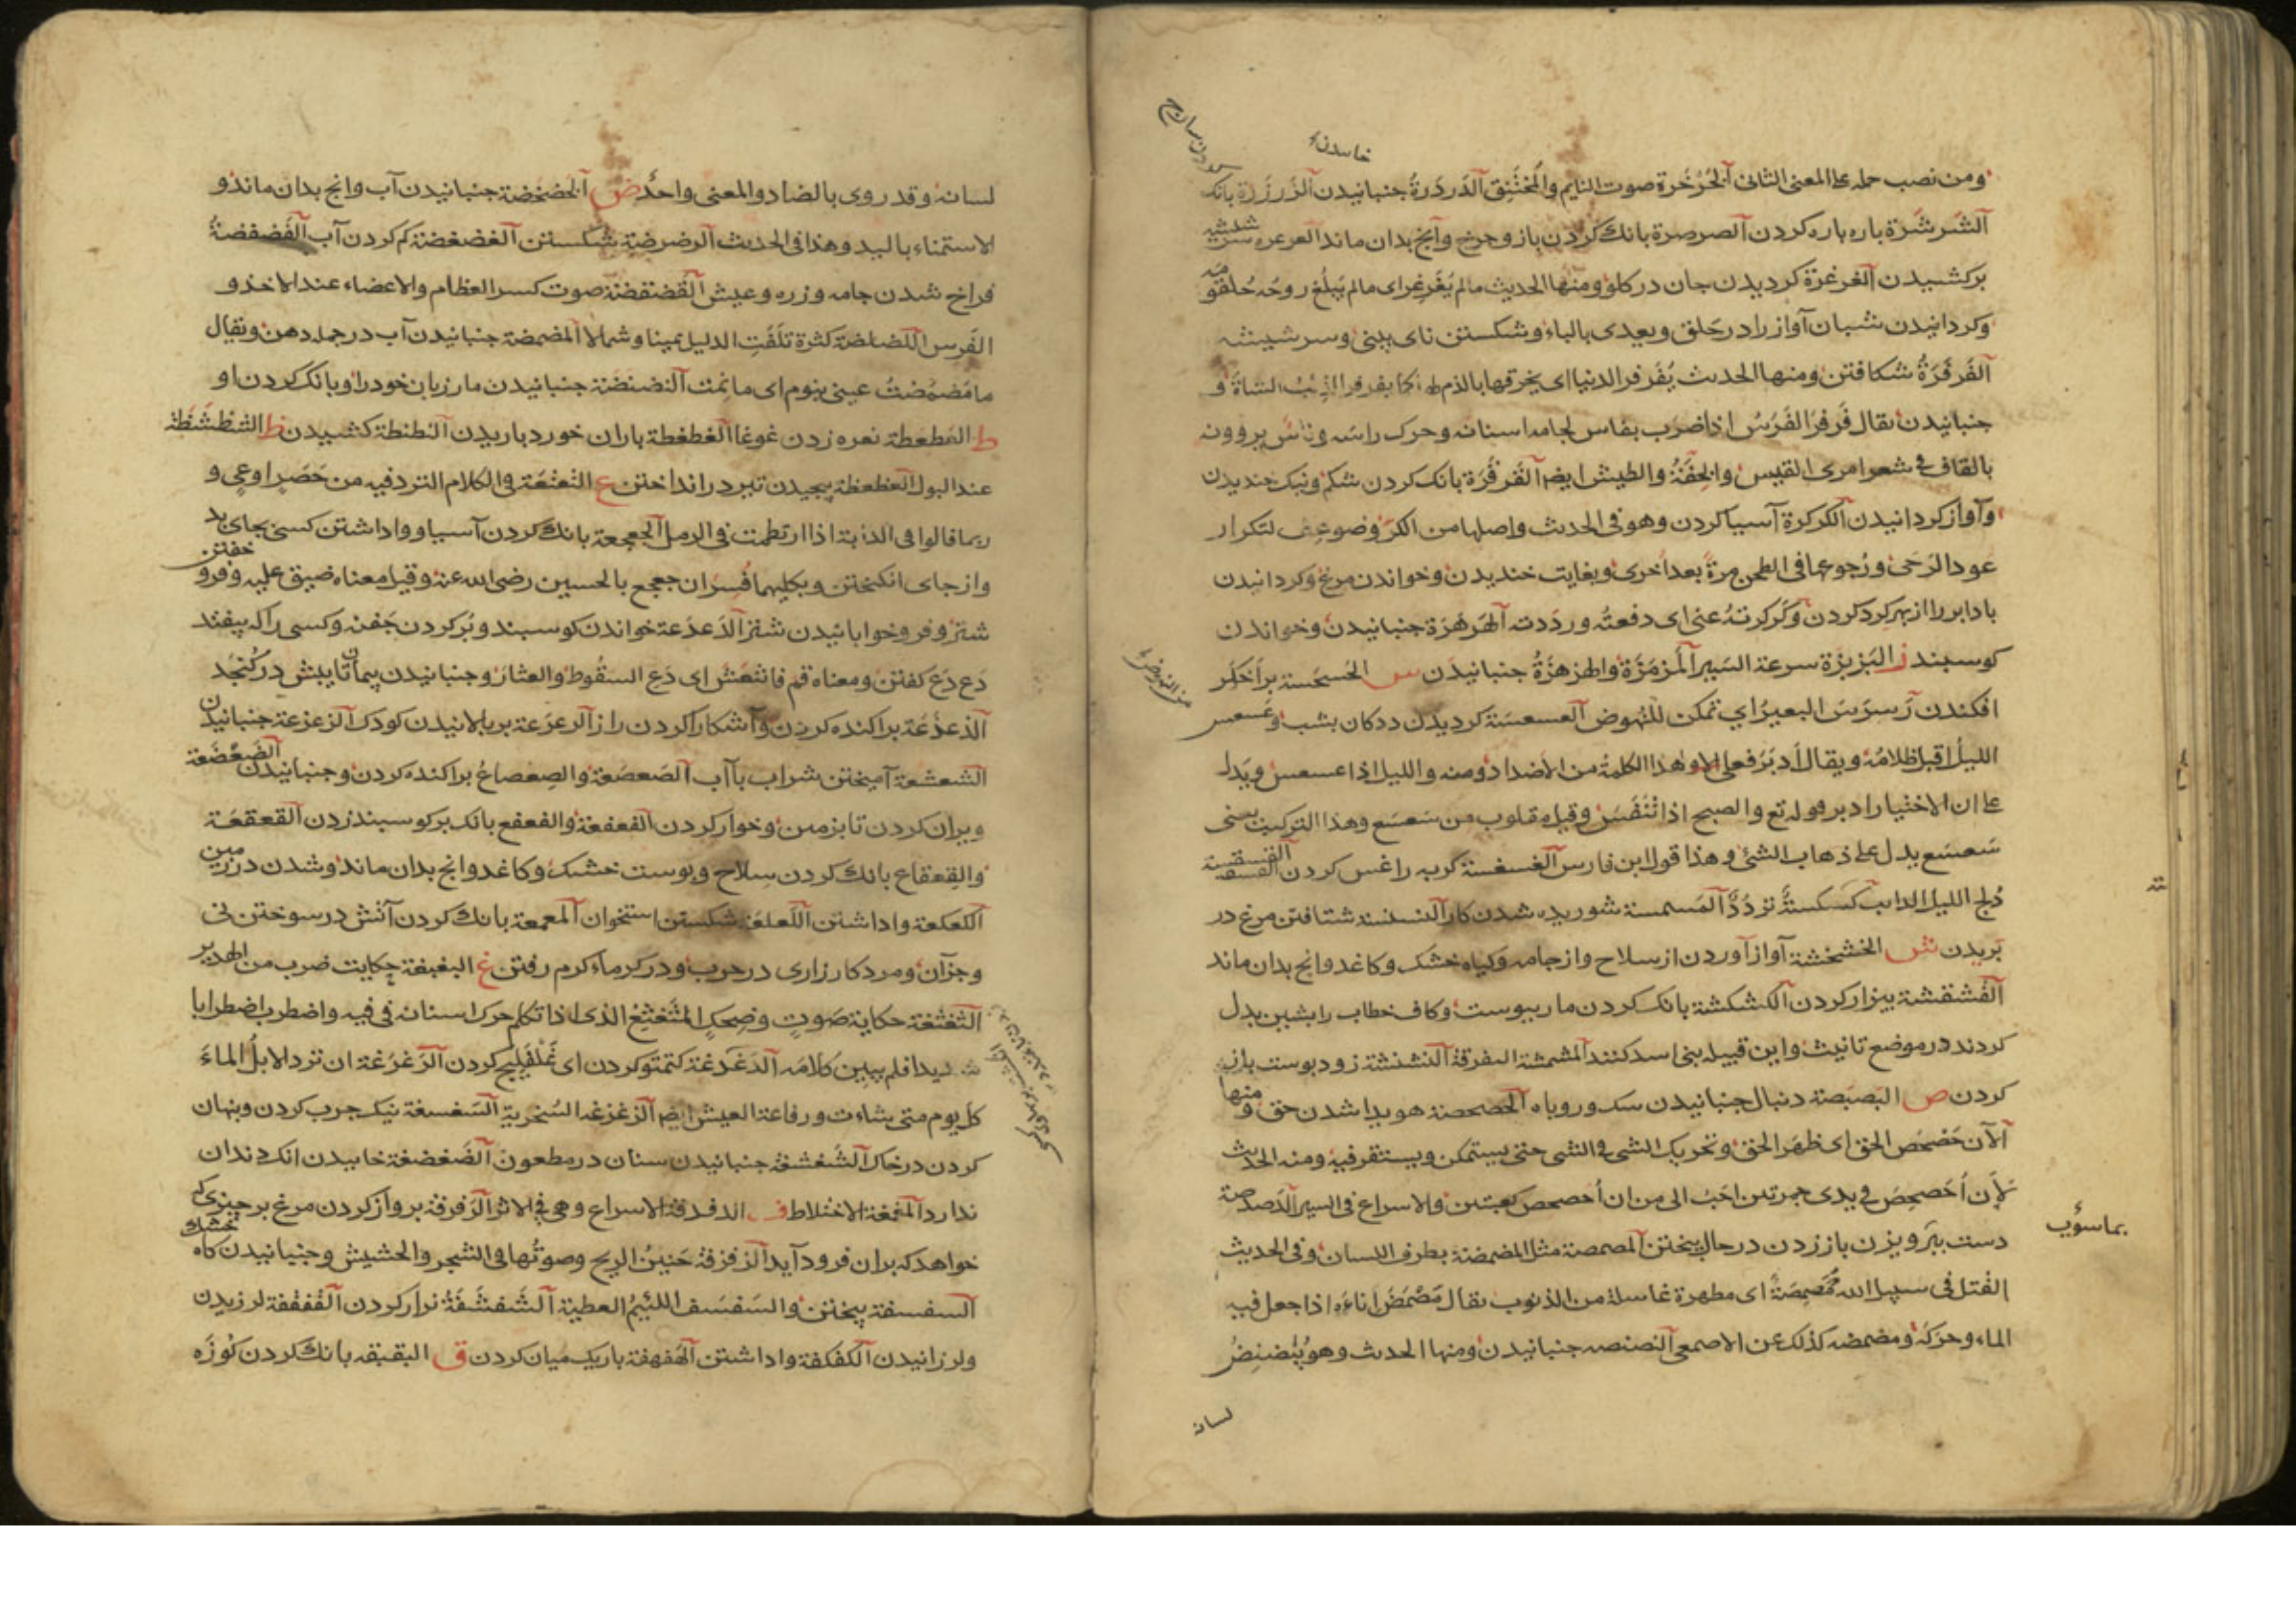 ومن نصب حمله على المعنى الثانى الخرخرة صوت النايم والمختنق الدردرة جنبانيدن الزرزرة بانك
الشرشرة باره باره كردن الصرصرة بانك كردن باز وجرخ وآنج بدان ماند العرعره
بركشيدن الغرغرة كرديدن جان در كلو ومنها الحديث مالم يغرغر اى مالم يبلغ روحه حلقومه
وكردانيدن شبان آواز را در حلق ويعدى بالباء وشكستن ناى بينى وسر شيشه
الفرفرة شكافتن ومنها الحديث يفرفر الدنيا اى يخرقها بالذم كما يفرفر الذئب الشاة و
جنبانيدن يقال فرفر الفرس اذا ضرب بفاس لجامه اسنانه وحرك راسه وناس يروونه
بالقاف فى شعر امرى القيس والخفة والطيش ايضا القرقرة بانك كردن شكم ونيك خنديدن
وآواز كردانيدن الكركرة آسيا كردن وهو فى الحديث واصلها من الكر وضوعف لتكرار
عود الرحى ورجوعها فى الطحن مرة بعد اخرى وبغايت خنديدن وخواندن مرغ وكردانيدن
باد ابر را از بهر كرد كردن وكركرته عنى اى دفعته ورددته الهرهرة جنبانيدن وخواندن
كوسبند ز البزبزة سرعة السير المزمزة والهزهزة جنبانيدن س الحسحسة بر اخكر
افكندن رسرس البعير اي تمكن للنهوض العسعسة كرديدن دد كان بشب وعسعس
الليل اقبل ظلامه ويقال ادبر فعلى الاول هذا الكلمة من الاضداد ومنه والليل اذا عسعس ويدل
على ان الاختيار ادبر قوله تع والصبح اذا تنفس وقيل مقلوب من سعسع وهذا التركيب
سعسع يدل على ذهاب الشئ وهذا قول ابن فارس الغسغسة كربه را غس كردن
دلج الليل الدايب كسكسة تردد المسمسة شوريده شدن كار النسنسة شتافتن مرغ در
بريدن ش الخشخشة آواز آوردن از سلاح واز جامه وكياه خشك وكاغد وانج بدان ماند
القشقشة بيزار كردن الكشكشة بانك كردن مار ببوست وكاف خطاب را بشين بدل
كردند در موضع تانيث واين قبيله بنى اسد كنند المشمشة التفرقة النشنشة زود بوست باز
كردن ص البصبصة دنبال جنبانيدن سك وروباه الحصحصة هويدا شدن حق ومنها
الآن حصحص الحق اى ظهر الحق وتحريك الشى فى الشى حتى يستمكن ويستقر فيه ومنه الحديث
لان احصحص فى يدى جمرتين احب الى من ان احصحص كعبتين والاسراع فى السير الدصدصة
دست ببرويزن باز زدن در حال بيختن المصمصة مثل المضمضة بطرف اللسان وفى الحديث
القتل فى سبيل الله ممصمصة اى مطهرة غاسلة من الذنوب يقال مصمص اناءه اذا جعل فيه
الماء وحركه ومضمضه كذلك عن الاصمعى النصنصه جنبانيدن ومنها الحديث وهو ينضنض
لسانه
لسانه وقد روى بالضاد والمعنى واحد ض الخضخضة جنبانيدن آب وانج بدان ماند و
الاستمناء باليد وهذا فى الحديث الرضرضة شكستن الغضغضة كم كردن آب الفضفضة
فراخ شدن جامه وزره وعيش القضقضة صوت كسر العظام والاعضاء عند الاخذ و
الفرس اللضلضة كثرة تلفت الدليل يمينا وشمالا المضمضة جنبانيدن آب در جمله دهن ويقال
ما مضمضت عينى بنوم اى ما نمت النضنضة جنبانيدن مار زبان خود را وبانك كردن او
ط العطعطة نعره زدن غوغا الغطغطة باران خورد باريدن النطنطة كشيدن ظ الشظشظة
عند البول العظعظة بيجيدن تير در انداختن ع التعتعة فى الكلام التردد فيه من حصر او عى و
ربما قالوا فى الدابة اذا ارتطمت فى الرمل الجعجعة بانك كردن آسيا وواداشتن كسى بجاى بد
واز جاى انكيختن وبكليهما فسر ان جعجع بالحسين رضى الله عنه وقيل معناه ضيق عليه وفرو خفتن
شتر وفرو خوابانيدن شتر الدعدعة خواندن كوسبند وبر كردن جفنه وكسى را كه بيفتد
دع دع كفتن ومعناه قم فانتعش اى دع السقوط والعثار وجنبانيدن پيمانه تا بيش در كنجد
الذعذعة براكنده كردن وآشكارا كردن راز الرعرعة بر بالانيدن كودك الزعزعة جنبانيدن
الشعشعة آميختن شراب با آب الصعصعة والصعصاع براكنده كردن وجنبانيدن الضعضعة
ويران كردن تا بزمين وخوار كردن الفعفعة والفعفع بانك بر كوسبند زدن القعقعة
والقعقاع بانك كردن سلاح وبوست خشك وكاغد وانج بدان ماند وشدن در زمين
الكعكعة واداشتن اللعلعة شكستن استخوان المعمعة بانك كردن آتش در سوختن نى
وجز آن ومرد كارزارى در حرب ودر كرماء كرم رفتن غ البغبغة حكايت ضرب من الهدير
الثغثغة حكاية صوت وضحك المثغثغ الذى اذا تكلم حرك اسنانه فى فيه واضطرب اضطرابا
شديدا فلم يبين كلامه الدغدغة كتمتو كردن اى غلغليج كردن الزغزغة ان ترد الابل الماء
كل يوم متى شاءت ورفاعة العيش ايضا الزغزغة السخرية السغسغة نيك جرب كردن وبنهان
كردن در خاك الشغشغة جنبانيدن سنان در مطعون الضغضغة خاييدن انك دندان
ندارد المغمغة الاختلاط ف الدفدفة الاسراع وهى فى الاثر الرفرفة برواز كردن مرغ بر جيزى كه
خواهد كه بران فرود آيد الزفزفة حنين الريح وصوتها فى الشجر والحشيش وجنبانيدن كاه خشك
السفسفة بيختن والسفسف اللئيم العطية الشفشفة نزار كردن القفقفة لرزيدن
ولرزانيدن الكفكفة واداشتن الهفهفة باريك ميان كردن ق البقبقه بانك كردن كوزه